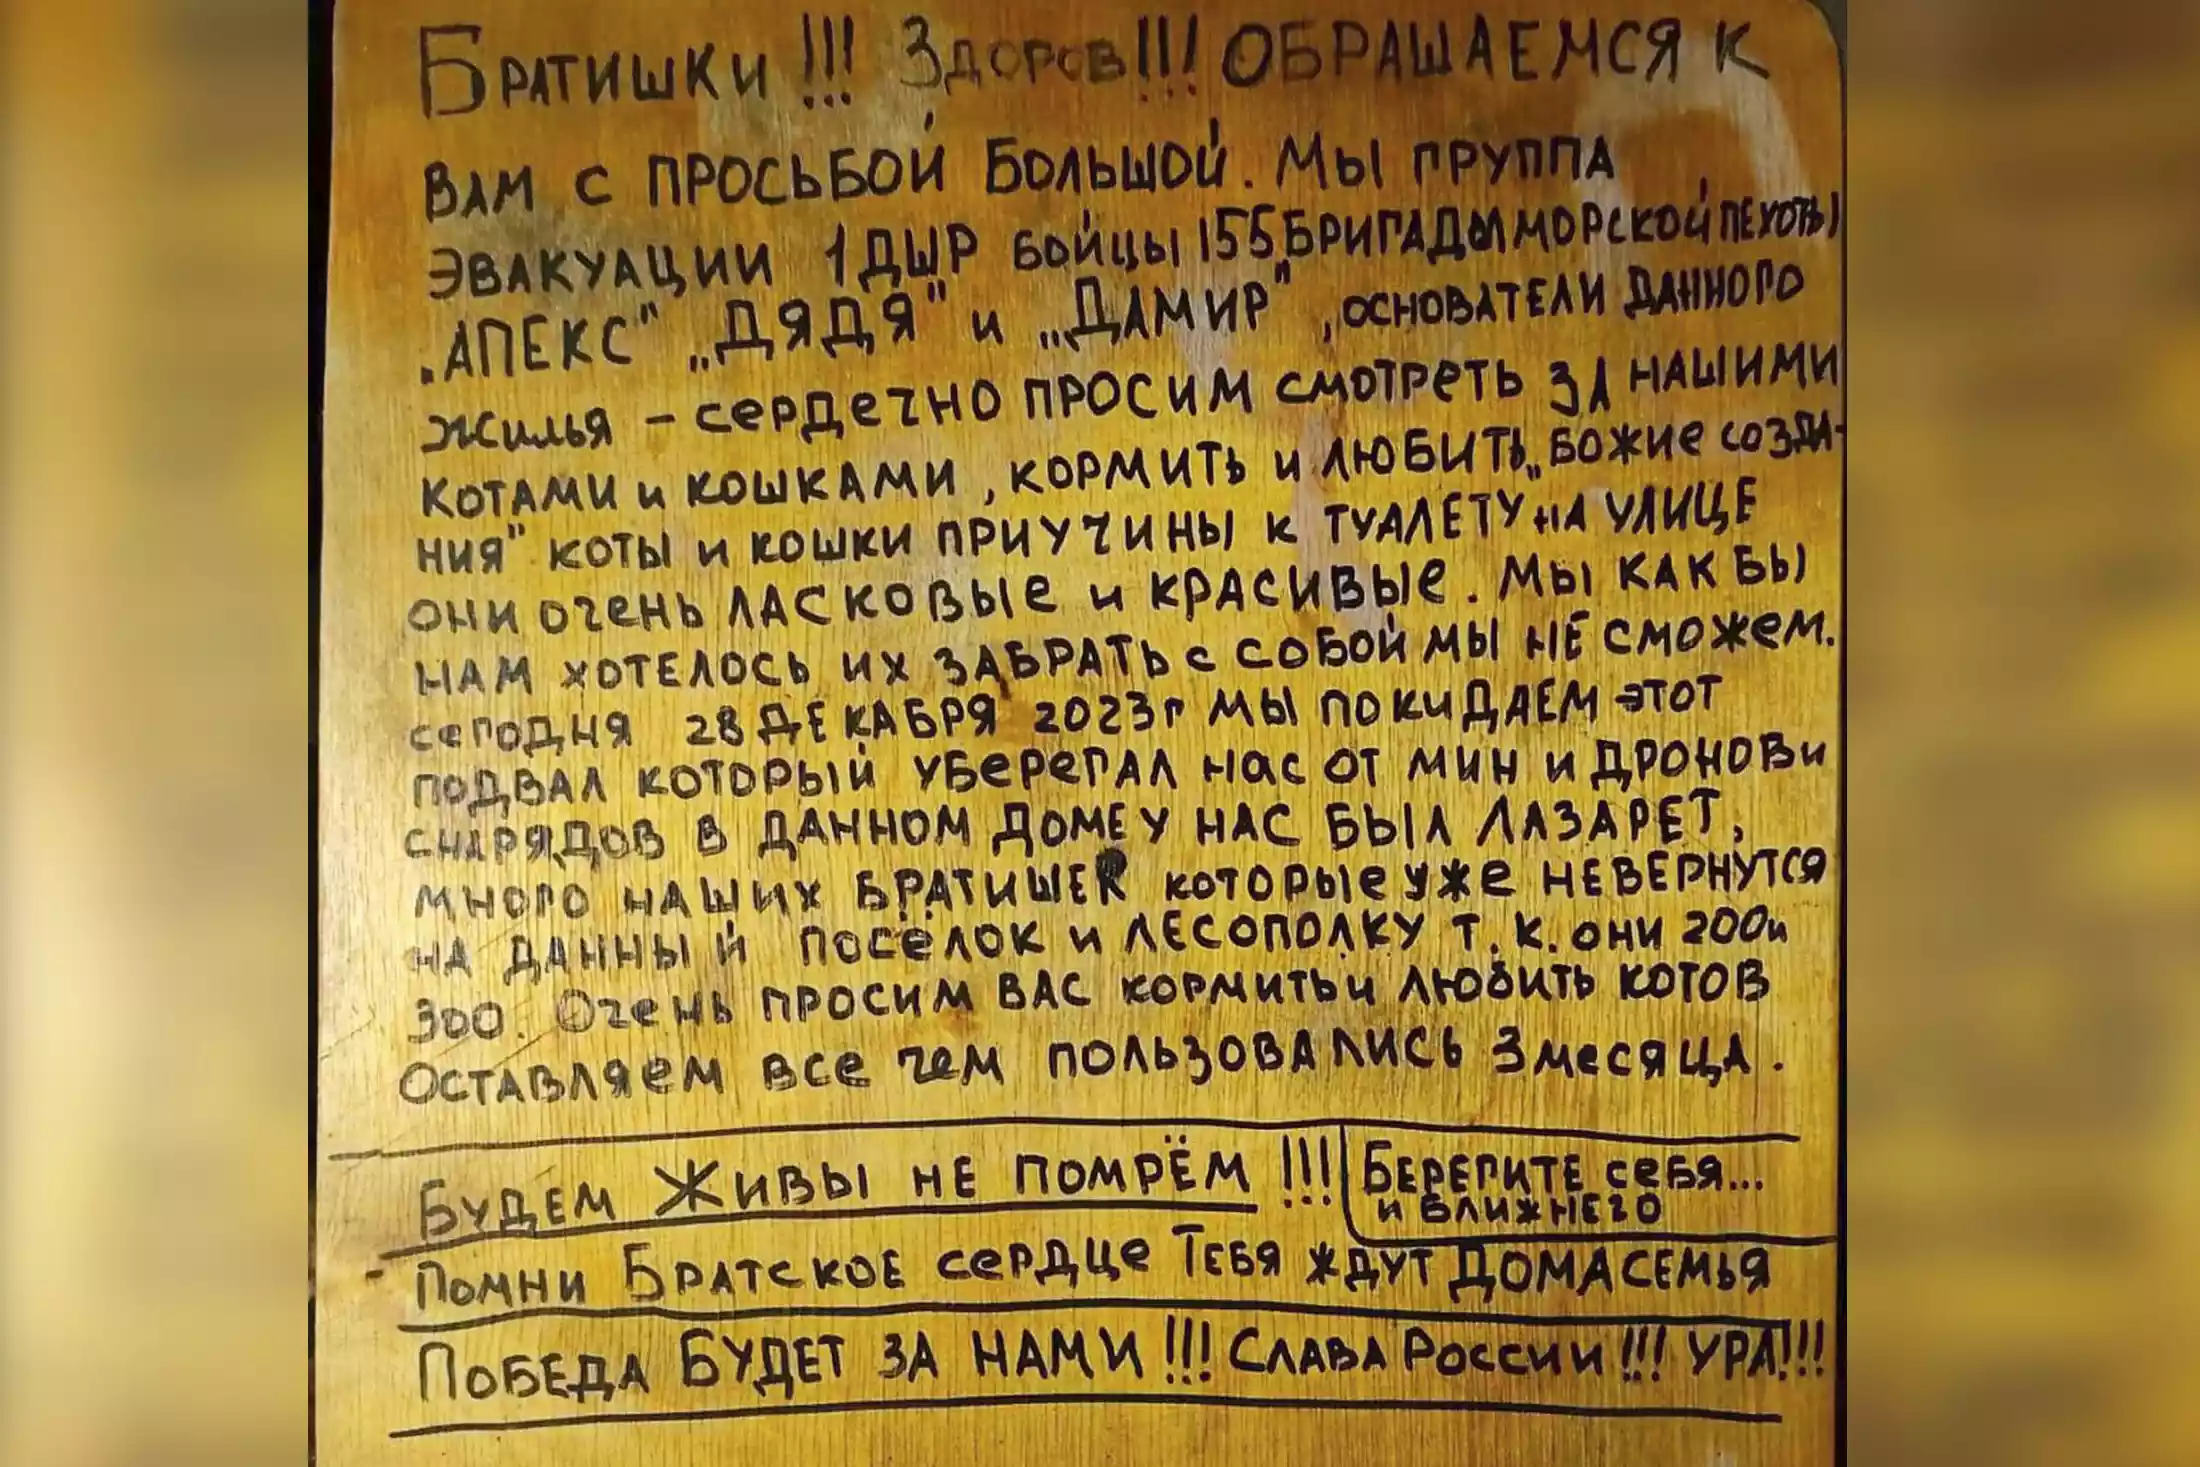 Братишки!!! Здоров!!! ОБРАЩАЕМСЯ К
ВАМ С ПРОСЬБОЙ БОЛЬШОЙ. МЫ ГРУППА
ЭВАКУАЦИИ 1ДШР БОЙЦЫ 155БРИГАДЫ МОРСКОЙ ПЕХОТЫ
"АПЕКС" „ДЯДЯ" и „ДАМИР", ОСНОВАТЕЛИ ДАННОГО
ЖИЛЬЯ – СЕРДЕЧНО ПРОСИМ СМОТРЕТЬ ЗА НАШИМИ
КОТАМИ И КОШКАМИ, КОРМИТЬ И ЛЮБИТЬ „БОЖИЕ СОЗДА-
НИЯ" КОТЫ И КОШКИ ПРИУЧИНЫ К ТУАЛЕТУ НА УЛИЦЕ
ОНИ ОЧЕНЬ ЛАСКОВЫЕ И КРАСИВЫЕ. МЫ КАК БЫ
НАМ ХОТЕЛОСЬ ИХ ЗАБРАТЬ С СОБОЙ МЫ НЕ СМОЖЕМ.
СЕГОДНЯ 28 ДЕКАБРЯ 2023г МЫ ПОКИДАЕМ ЭТОТ
ПОДВАЛ КОТОРЫЙ УБЕРЕГАЛ НАС ОТ МИН И ДРОНОВ И
СНАРЯДОВ В ДАННОМ ДОМЕ У НАС БЫЛ ЛАЗАРЕТ,
МНОГО НАШИХ БРАТИШЕК КОТОРЫЕ УЖЕ НЕВЕРНУТСЯ
НА ДАННЫЙ ПОСЁЛОК И ЛЕСОПОЛКУ Т.К. ОНИ 200 и
300. ОЧЕНЬ ПРОСИМ ВАС КОРМИТЬ И ЛЮБИТЬ КОТОВ
ОСТАВЛЯЕМ ВСЕ ЧЕМ ПОЛЬЗОВАЛИСЬ 3 МЕСЯЦА.
БУДЕМ ЖИВЫ НЕ ПОМРЁМ!!!
БЕРЕГИТЕ СЕБЯ...
И БЛИЖНЕГО
- ПОМНИ БРАТСКОЕ СЕРДЦЕ ТЕБЯ ЖДУТ ДОМА СЕМЬЯ
ПОБЕДА БУДЕТ ЗА НАМИ!!! СЛАВА РОССИИ!!! УРА!!!